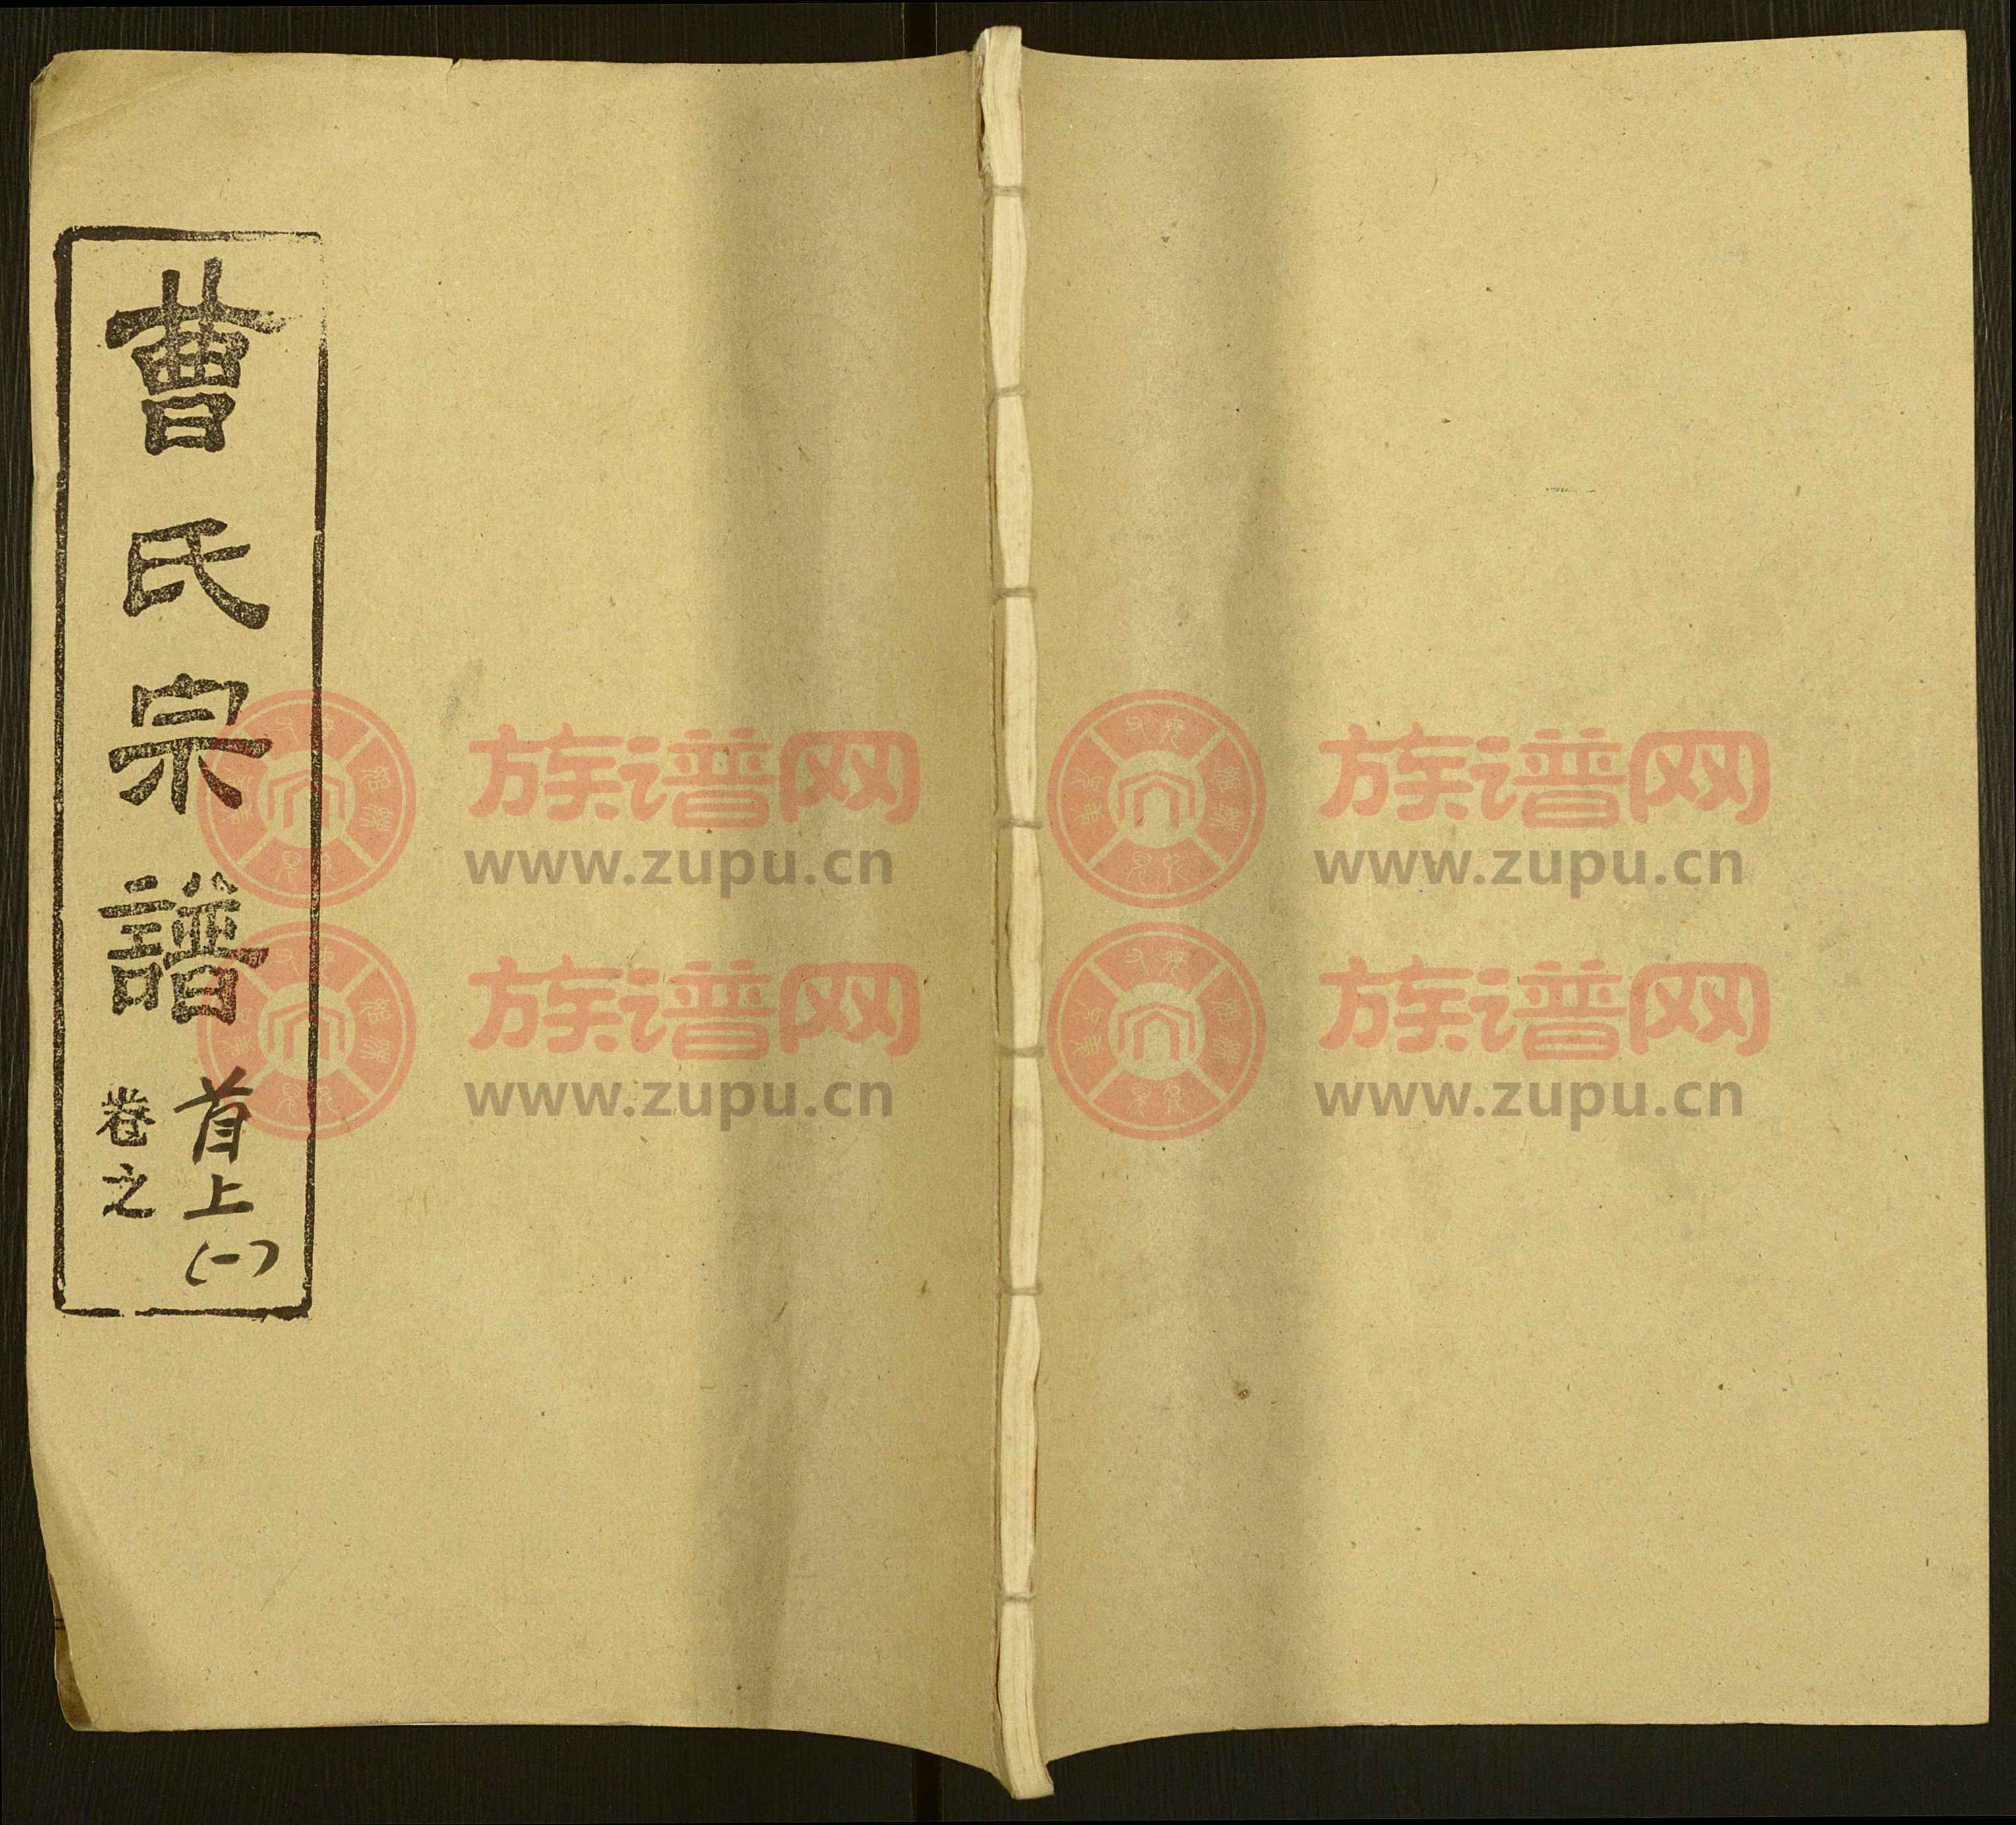 曹氏宗譜
首上(一)
卷之
族谱网
www.zupu.cn
族谱网
www.zupu.cn
族谱网
www.zupu.cn
族谱网
www.zupu.cn